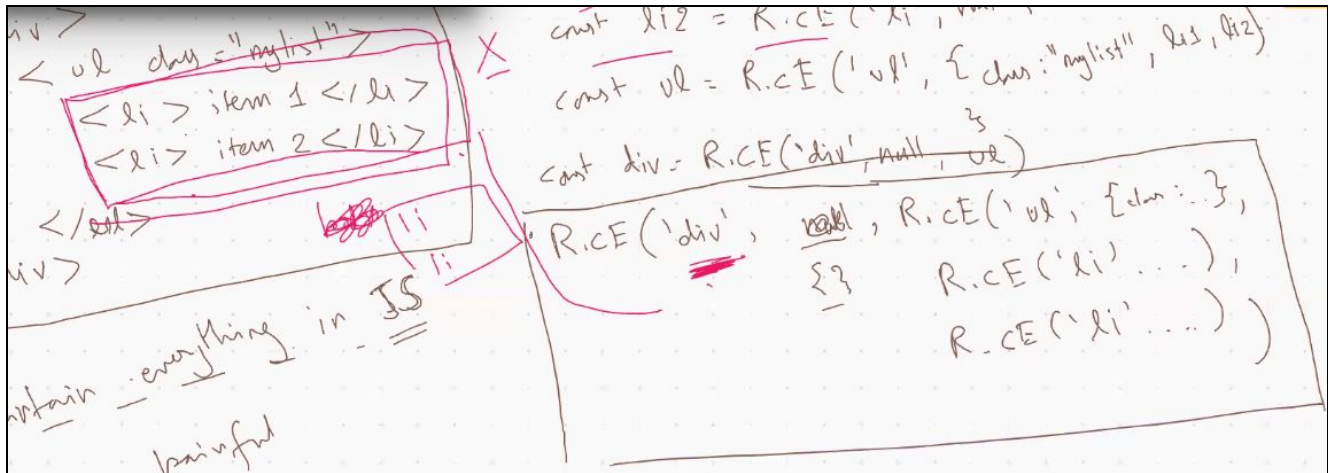 <ul class="mylist">
<li> item 1 </li>
<li> item 2 </li>
</ul>
li
li
everything in JS
painful
X
const li2 = R.cE('li', null,
const ul = R.cE('ul', {class:"mylist", li1, li2)
const div = R.CE('div', null, ul)
R.cE('div', null, R.cE('ul', {class:..},
{} R.cE('li'...),
R.cE('li'....))